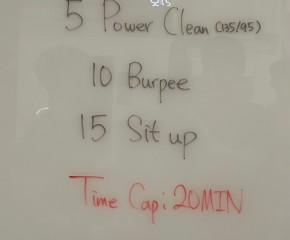 5 Power Clean (135/95)
10 Burpee
15 Sit up
Time Cap: 20MIN